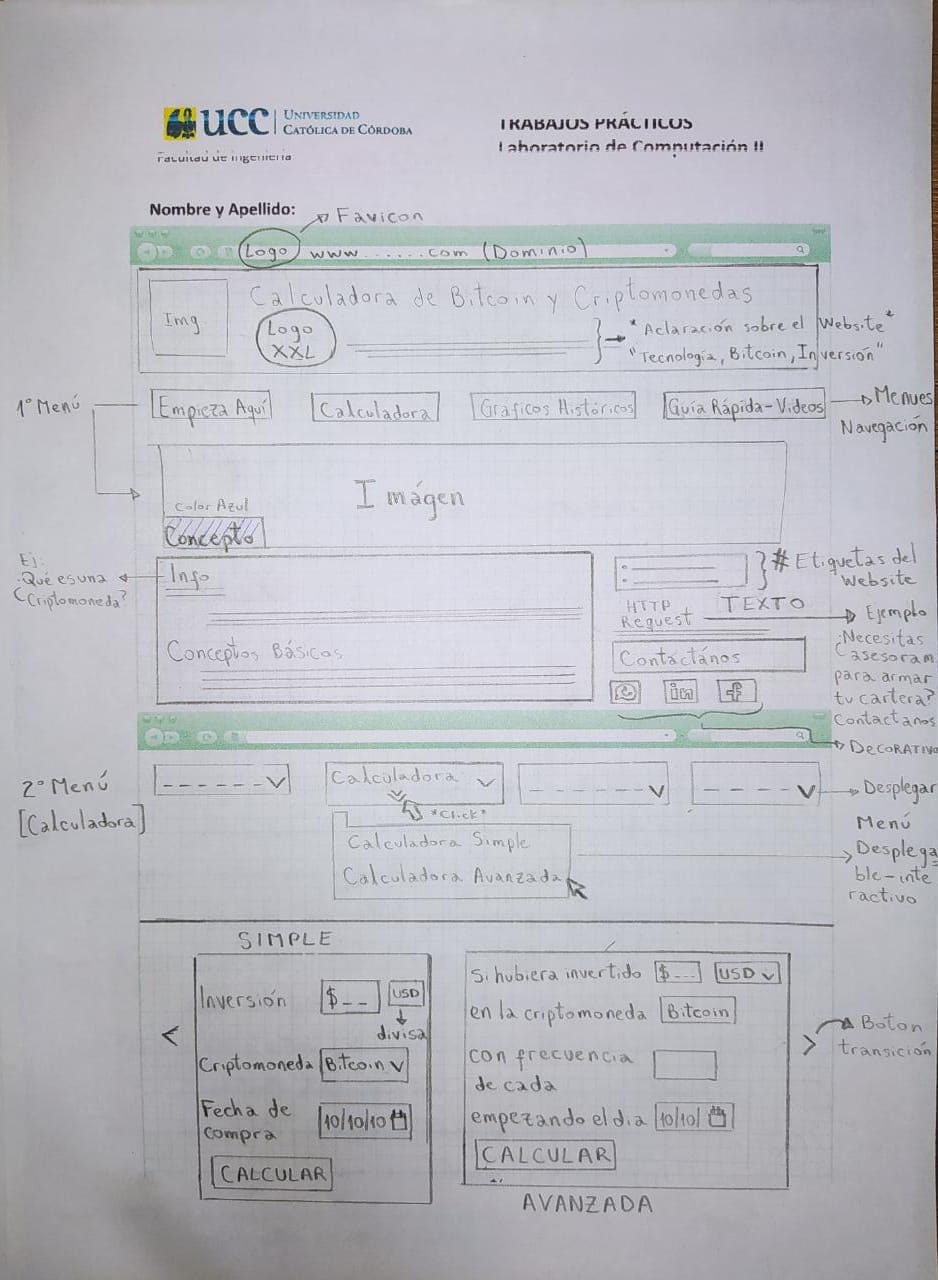 UCC UNIVERSIDAD
CATÓLICA DE CÓRDOBA
Facultad de Ingeniería
TRABAJOS PRÁCTICOS
Laboratorio de Computación II
Nombre y Apellido:
Favicon
Logo www.......com (Dominio)
Img
Calculadora de Bitcoin y Criptomonedas
Logo
XXL
"Aclaración sobre el Website"
"Tecnología, Bitcoin, Inversión"
1° Menú
Empieza Aquí
Calculadora
Gráficos Históricos
Guía Rápida-Videos
Menues
Navegación
Imágen
Color Azul
Concepto
Ej:
¿Qué es una
Criptomoneda?
Info
Conceptos Básicos
# Etiquetas del
Website
HTTP
Request
TEXTO
Ejemplo
¿Necesitas
asesoram
para armar
tu cartera?
Contactanos
Contáctános
in
f
DECORATIVO
2° Menú
[Calculadora]
Calculadora
*Click*
Desplegar
Calculadora Simple
Calculadora Avanzada
Menú
Desplega
ble-inte
ractivo
SIMPLE
Inversión $-- USD
divisa
Criptomoneda Bitcoin
Fecha de
compra
10/10/10
CALCULAR
<
Si hubiera invertido $--- USD
en la criptomoneda Bitcoin
con frecuencia
de cada
empezando el dia 10/10/
CALCULAR
AVANZADA
>
Boton
transición